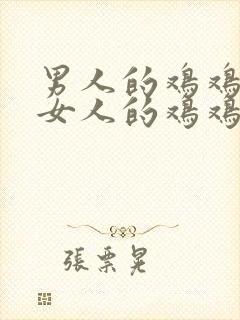 男人的鸡鸡
女人的鸡鸡
張票晃